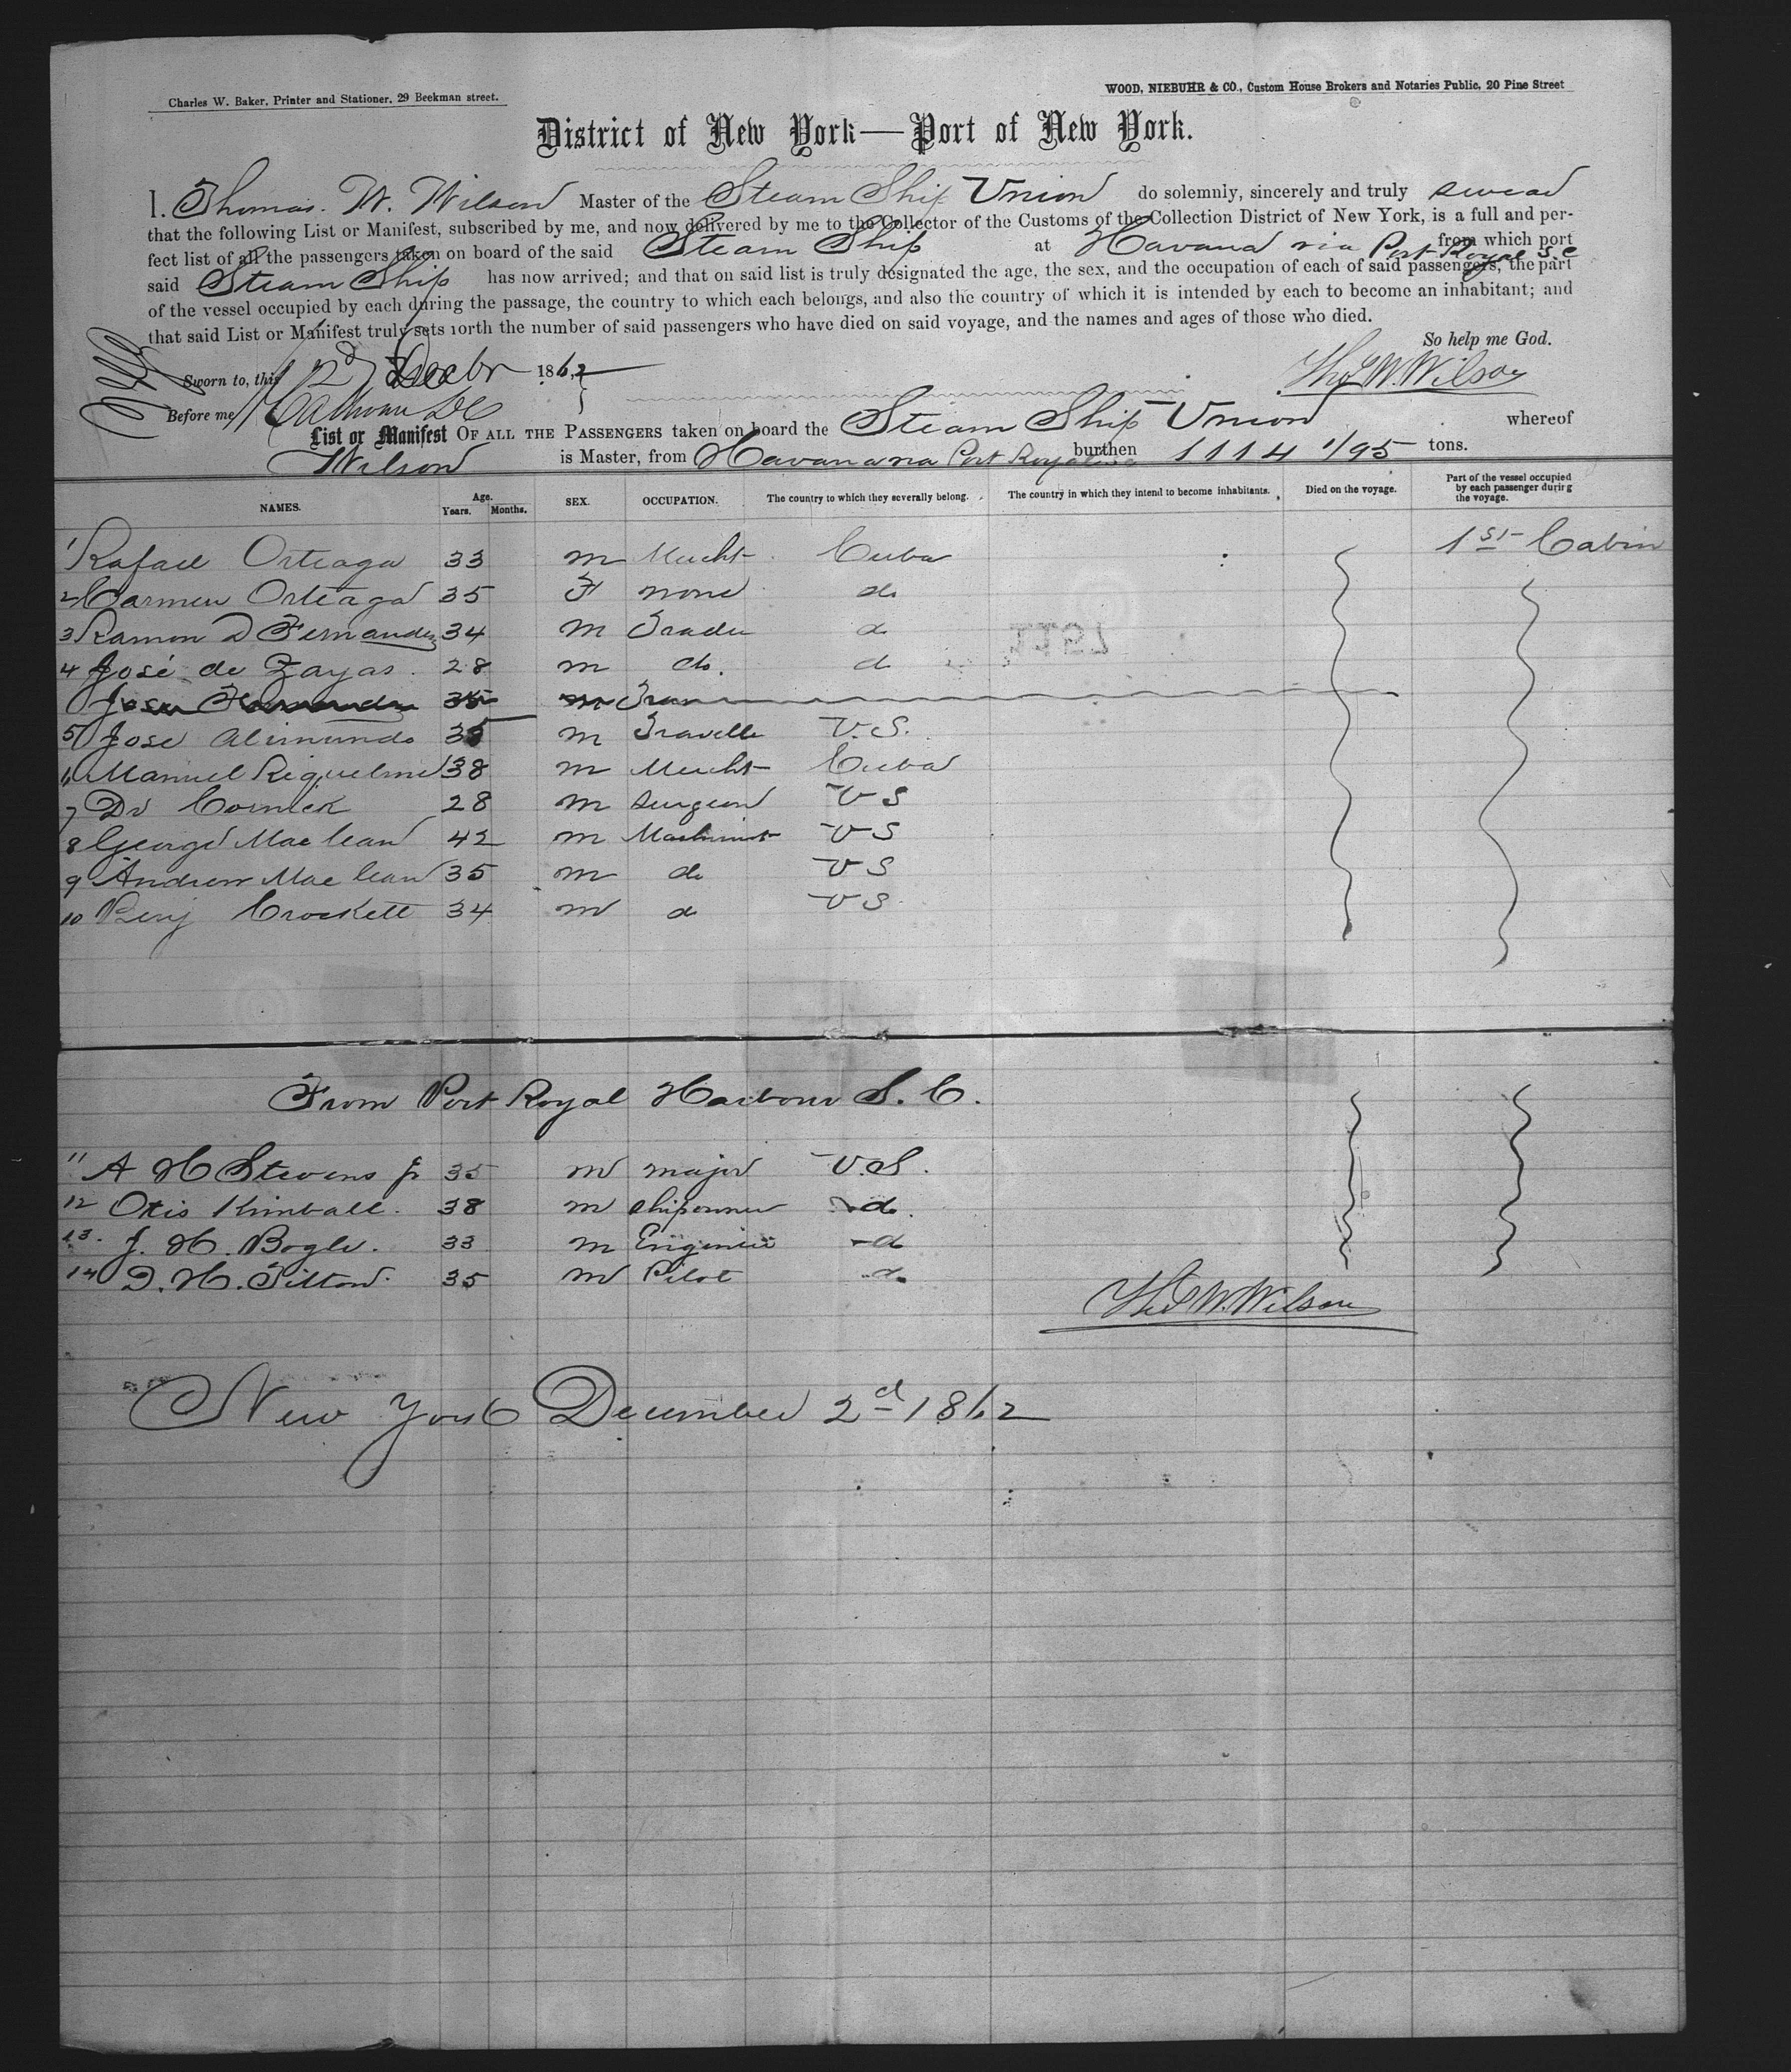 Charles W. Baker, Printer and Stationer, 29 Beekman street.
WOOD, NIEBUHR & CO., Custom House Brokers and Notaries Public, 20 Pine Street
District of New York—Port of New York.
I, Thomas. W. Wilson Master of the Steam Ship Union do solemnly, sincerely and truly swear
that the following List or Manifest, subscribed by me, and now delivered by me to the Collector of the Customs of the Collection District of New York, is a full and per-
fect list of all the passengers taken on board of the said Steam Ship at Havana via Port Royal S.C from which port
said Steam Ship has now arrived; and that on said list is truly designated the age, the sex, and the occupation of each of said passengers, the part
of the vessel occupied by each during the passage, the country to which each belongs, and also the country of which it is intended by each to become an inhabitant; and
that said List or Manifest truly sets forth the number of said passengers who have died on said voyage, and the names and ages of those who died.
So help me God.
Sworn to, this 2d Decbr 1862
Thos W. Wilson
Before me Calhoun DC
List or Manifest OF ALL THE PASSENGERS taken on board the Steam Ship Union whereof
Wilson is Master, from Havana via Port Royal burthen 1114 1/95 tons.
NAMES. Age. Years. Months. SEX. OCCUPATION. The country to which they severally belong. The country in which they intend to become inhabitants. Died on the voyage. Part of the vessel occupied by each passenger during the voyage.
1 Rafael Orteaga 33 m Mercht Cuba 1st Cabin
2 Carmen Orteaga 35 F none do
3 Ramon D Fernandez 34 m Trader do
4 José de Zayas. 28 m do. do
Jose 35 m Tra
5 Jose Alimundo 35 m Traveller U.S.
6 Manuel Riquelme 38 m Mercht Cuba
7 Dr Cornick 28 m Surgeon US
8 George Mac lean 42 m Machinist US
9 Andrew Mac lean 35 m do US
10 Benj Crockett 34 m do US
From Port Royal Harbour S. C.
11 A H Stevens Jr 35 m major U.S.
12 Otis Kimball. 38 m shipowner do.
13. J. H. Bogle. 33 m Engineer do
14 D. H. Tilton. 35 m Pilot do
Thos W. Wilson
New York December 2d 1862